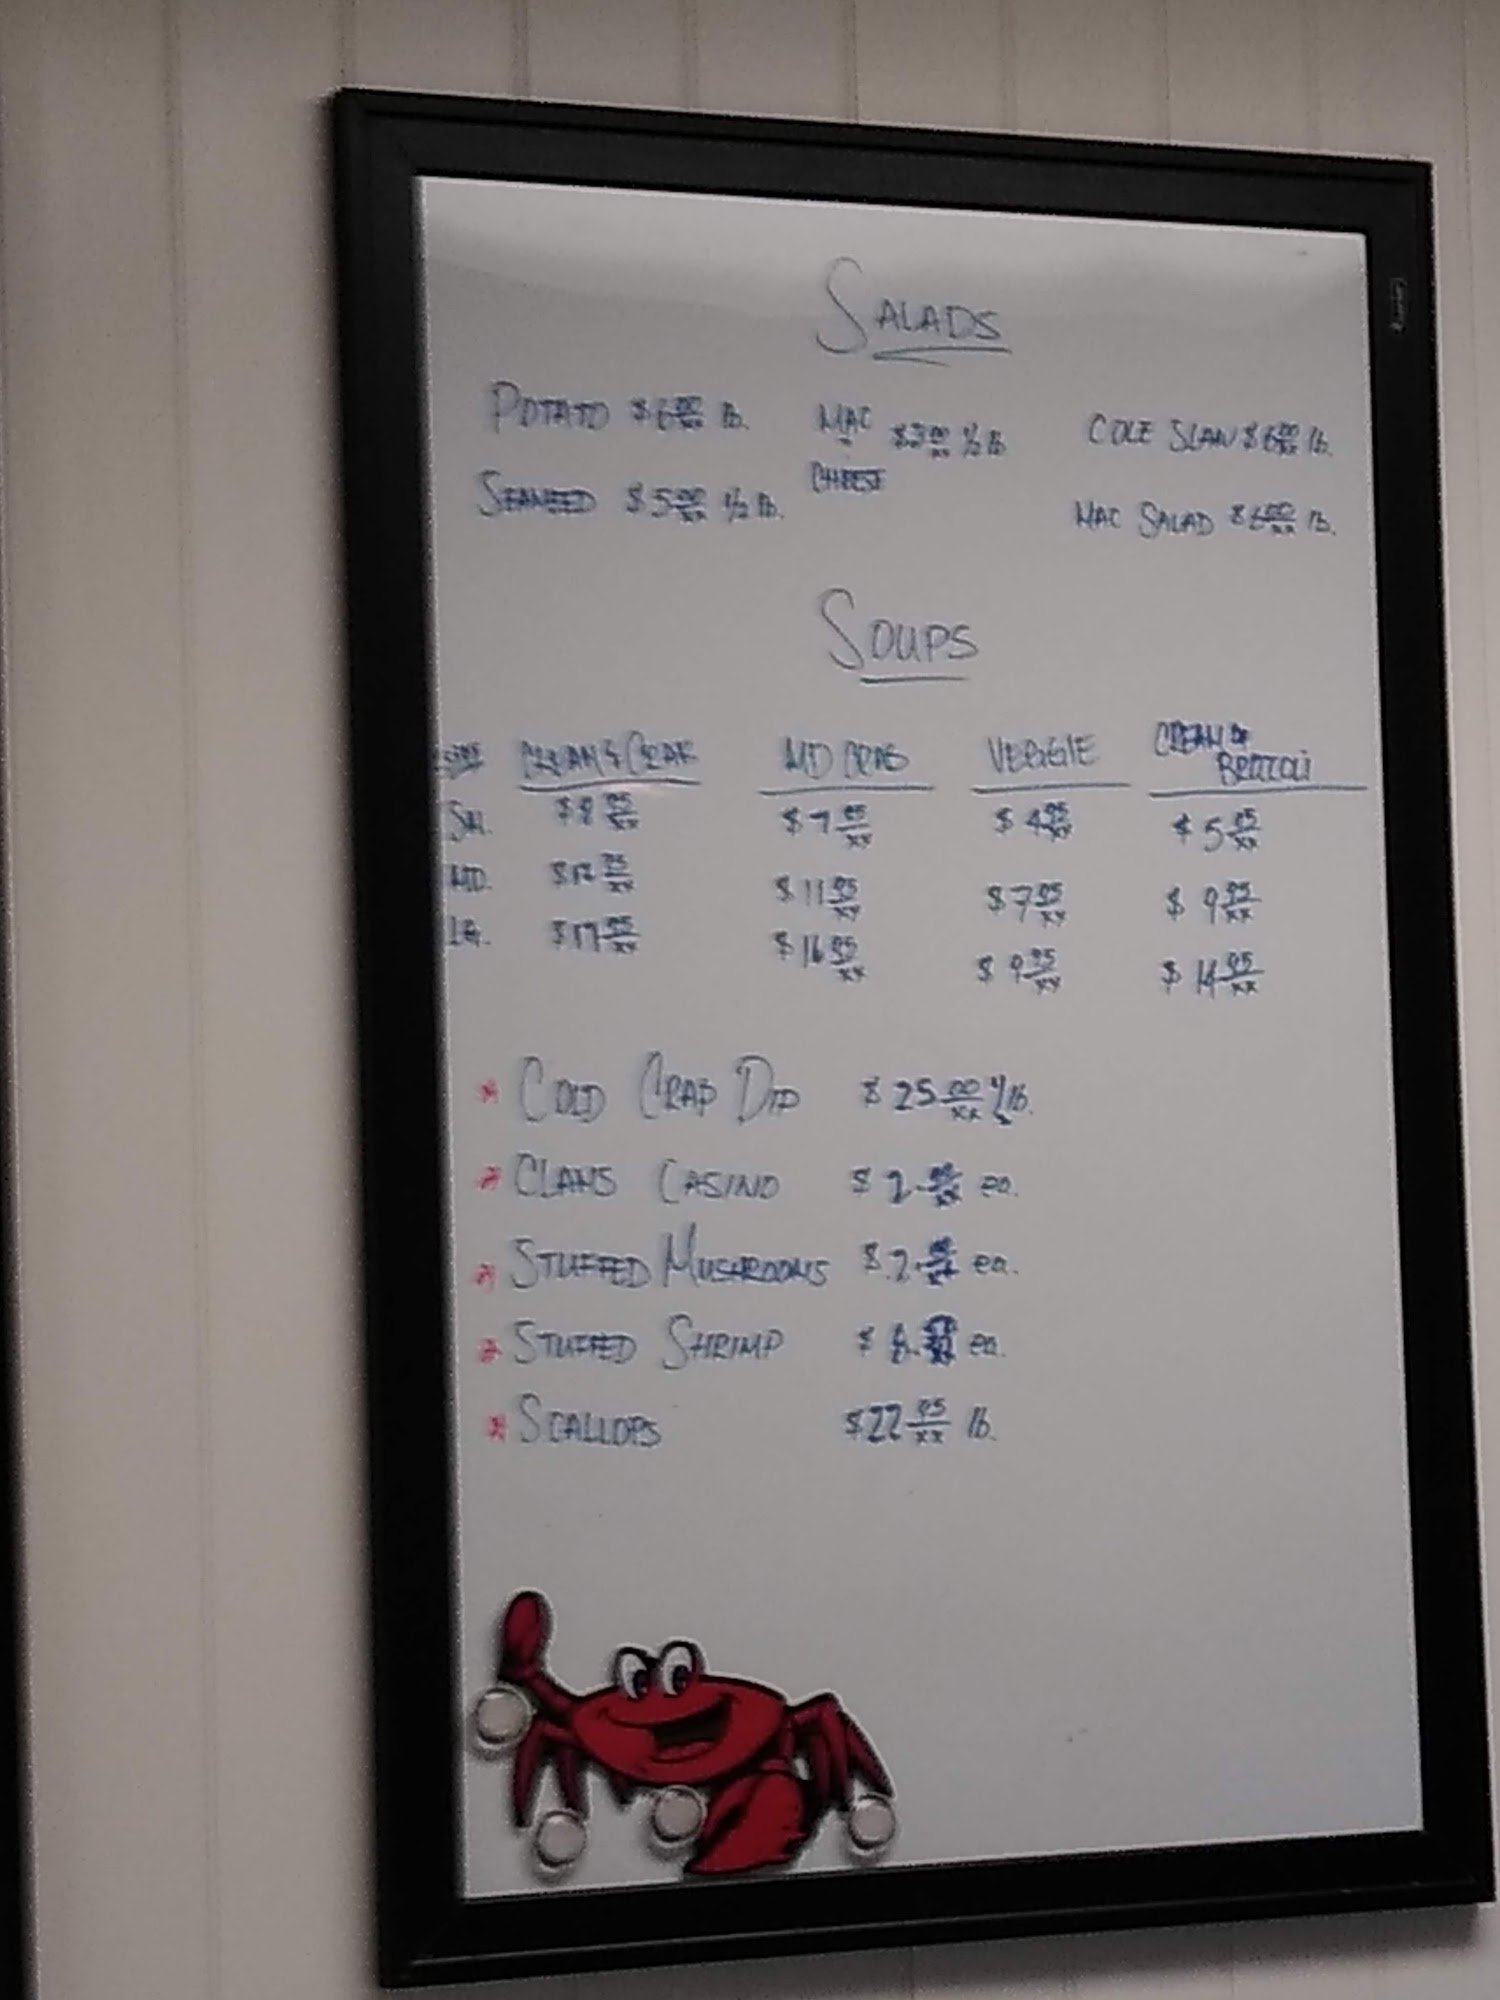 SALADS
POTATO $6 00/xx lb. MAC $3 00/xx 1/2 lb COLE SLAW $6 00/xx lb.
&
CHEESE
SEAWEED $5 00/xx 1/2 lb. MAC SALAD $6 00/xx lb.
SOUPS
SIZE CREAM & CRAB MD CRAB VEGGIE CREAM OF
BROCCOLI
SM. $8 95/xx $7 95/xx $4 95/xx $5 95/xx
MD. $12 95/xx $11 95/xx $7 95/xx $9 95/xx
LG. $17 95/xx $16 95/xx $9 95/xx $14 95/xx
* COLD CRAB DIP $25 00/xx lb.
* CLAMS CASINO $2. ea.
* STUFFED MUSHROOMS $2. ea.
* STUFFED SHRIMP ea.
* SCALLOPS $22 95/xx lb.